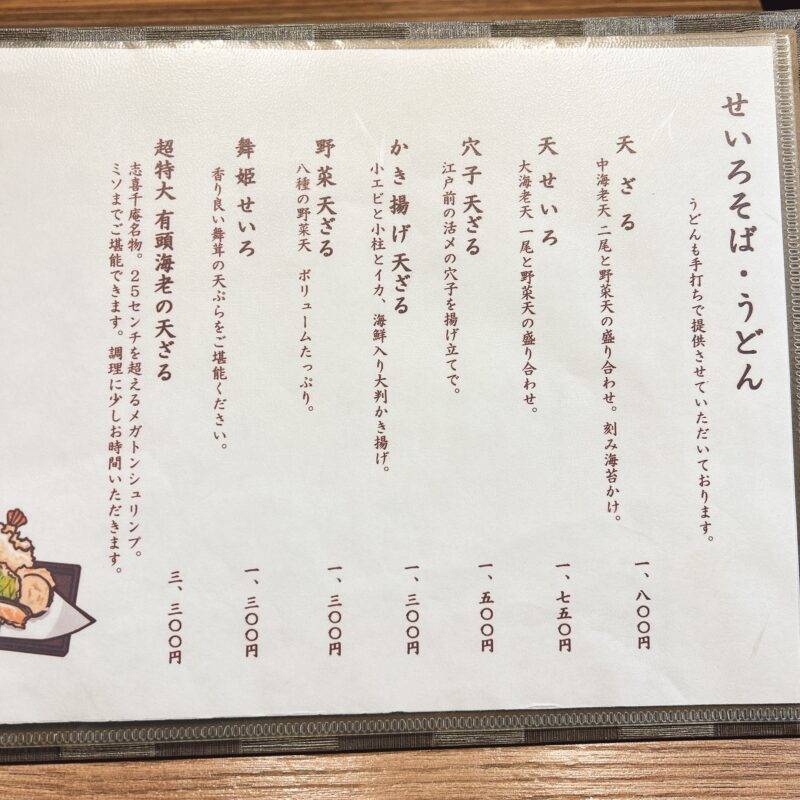 せいろそば・うどん
うどんも手打ちで提供させていただいております。
天ざる
中海老天 二尾と野菜天の盛り合わせ。刻み海苔かけ。
一、八〇〇円
天せいろ
大海老天 一尾と野菜天の盛り合わせ。
一、七五〇円
穴子天ざる
江戸前の活〆の穴子を揚げ立てで。
一、五〇〇円
かき揚げ天ざる
小エビと小柱とイカ、海鮮入り大判かき揚げ。
一、三〇〇円
野菜天ざる
八種の野菜天 ボリュームたっぷり。
一、三〇〇円
舞姫せいろ
香り良い舞茸の天ぷらをご堪能ください。
一、三〇〇円
超特大 有頭海老の天ざる
志喜千庵名物。25センチを超えるメガトンシュリンプ。
ミソまでご堪能できます。調理に少しお時間いただきます。
三、三〇〇円